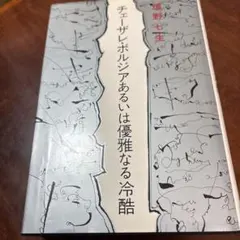 チェーザレ・ボルジアあるいは優雅なる冷酷
塩野七生